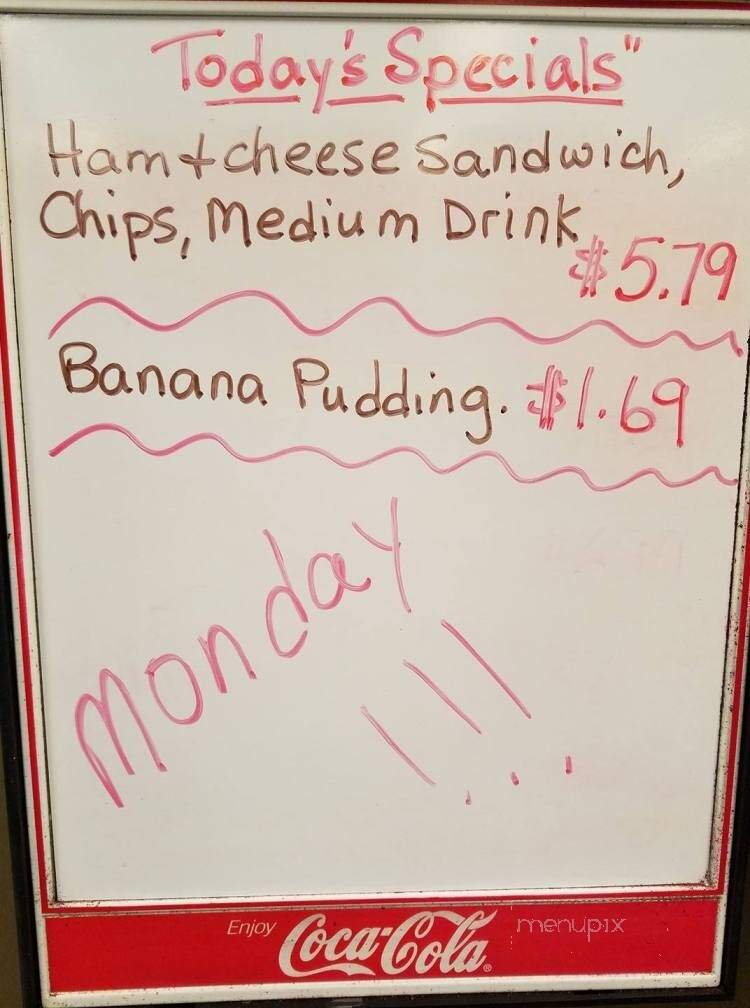 Today's Specials"
Ham + cheese Sandwich,
Chips, Medium Drink
$5.79
Banana Pudding. $1.69
Monday
!!!
Enjoy Coca-Cola ®
menupix